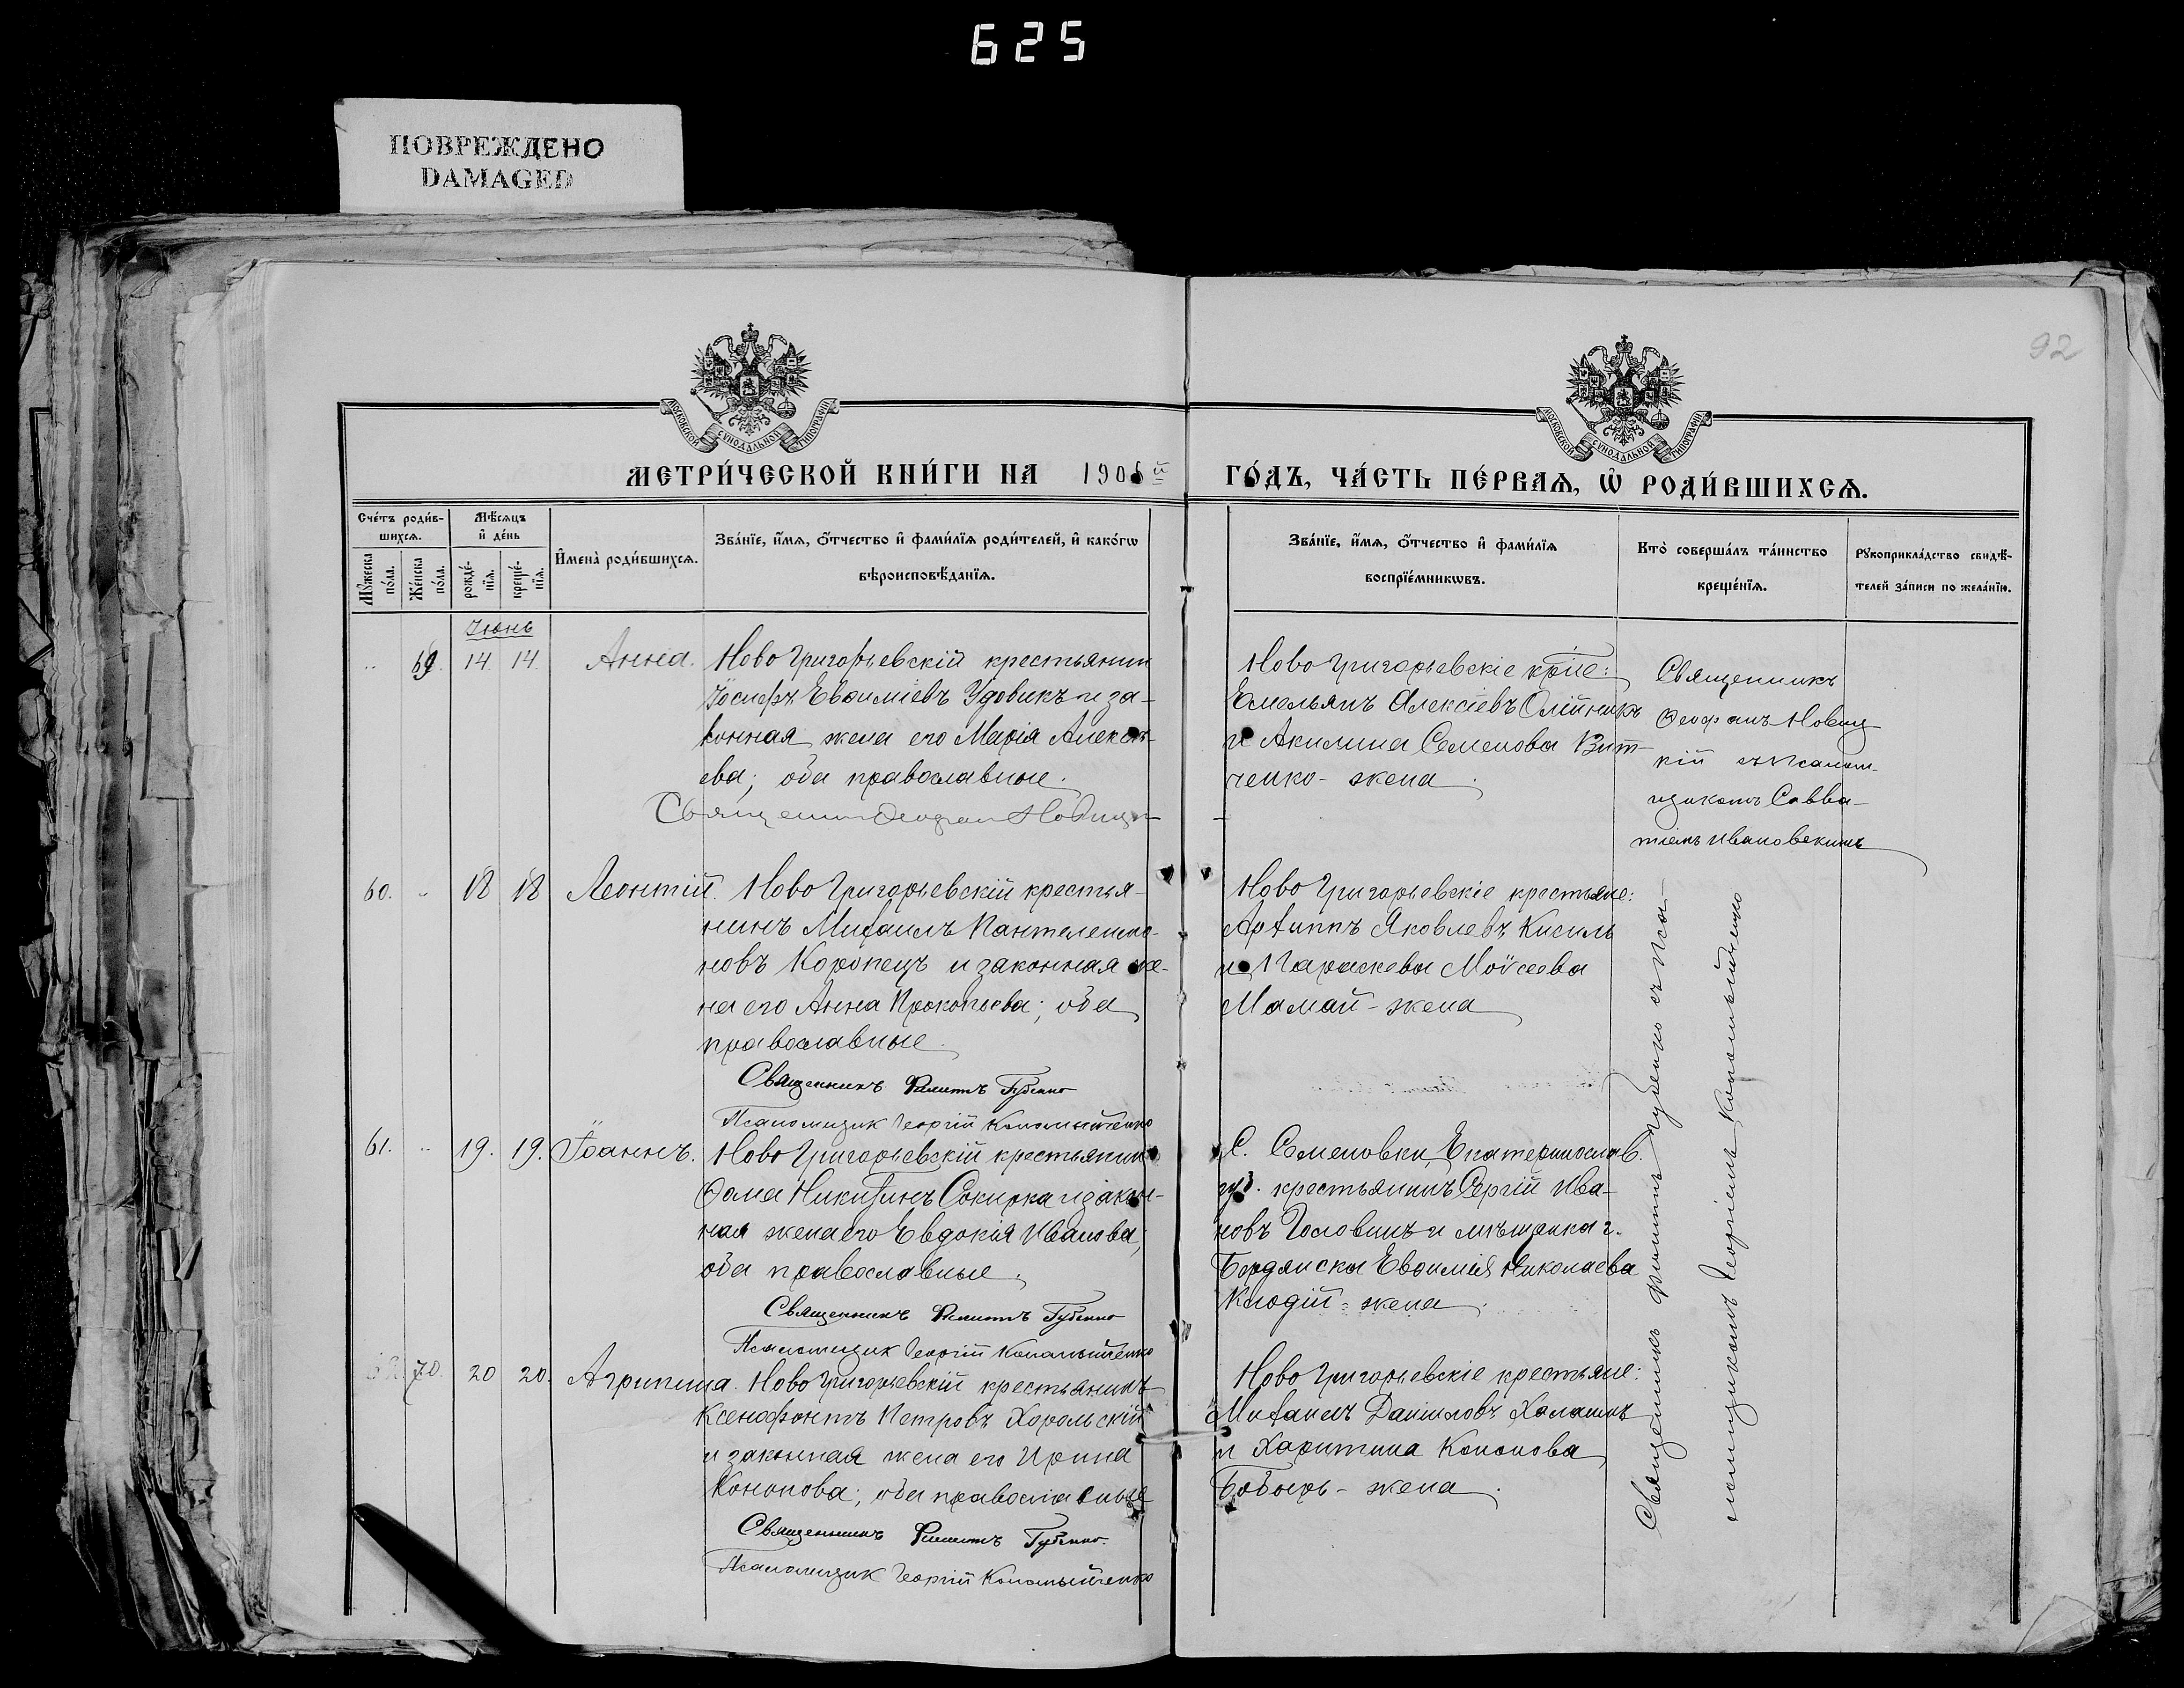 625
ПОВРЕЖДЕНО
DAMAGED
92
МОСКОВСКОЙ СѴНОДАЛЬНОЙ ТИПОГРАФІИ
МОСКОВСКОЙ СѴНОДАЛЬНОЙ ТИПОГРАФІИ
МЕТРИ́ЧЕСКОЙ КНИ́ГИ НА 1906й ГО́ДЪ, ЧА́СТЬ ПЕ́РВАѦ, Ѡ҆ РОДИ́ВШИХСѦ.
Сче́тъ роди́в-
шихсѧ.
Мꙋ́жеска по́ла.
Же́нска по́ла.
Мѣ́сѧцъ
и҆ де́нь
рожде́-
нїѧ.
креще́-
нїѧ.
И҆мена̀ роди́вшихсѧ.
Зва́нїе, и҆́мѧ, ѻ҆́тчество и҆ фами́лїѧ роди́телей, и҆ како́гѡ
вѣроисповѣ́данїѧ.
Зва́нїе, и҆́мѧ, ѻ҆́тчество и҆ фами́лїѧ
воспрїе́мникѡвъ.
Кто̀ соверша́лъ та́инство
креще́нїѧ.
Рꙋкоприкла́дство свидѣ́-
телей за́писи по жела́нїю.
Іюнь
" 69. 14. 14. Анна. Ново Григорьевскій крестьянин
Іосифъ Евѳиміевъ Удовикъ и за-
конная жена его Марія Алексѣ-
ева; оба православные.
Священник Ѳеофан Новицк
Ново Григорьевскіе кр-не:
Емельянъ Алексіевъ Олійникъ
и Акилина Семенова Вит-
ченко - жена.
Священникъ
Ѳеофанъ Новиц-
кій съ псалом-
щикомъ Савва-
тіемъ Ивановскимъ
60. " 18 18 Леонтій. Ново Григорьевскій крестья-
нинъ Михаилъ Пантелеимо-
новъ Коропецъ и законная же-
на его Анна Прокопіева; оба
православные.
Священникъ Филиппъ Губенко
Псаломщик Георгій Коломыйченко
Ново Григорьевскіе крестьяне:
Архиппъ Яковлевъ Кисиль
и Параскева Моѵсеева
Мамай - жена
61. " 19. 19. Іоаннъ. Ново Григорьевскій крестьянин
Ѳома Никитинъ Сокирка и закон-
ная жена его Евдокія Иванова;
оба православные.
Священникъ Филиппъ Губенко
Псаломщик Георгій Коломыйченко
С. Семеновки, Екатеринослав.
губ. крестьянинъ Сергій Ива-
новъ Головинъ и мѣщанка г.
Бердянска Евѳимія Николаева
Клодій - жена.
70. 20 20. Агрипина. Ново Григорьевскій крестьянинъ
Ксенофонтъ Петровъ Хорольскій
и законная жена его Ирина
Кононова; оба православные
Священникъ Филиппъ Губенко.
Псаломщик Георгій Коломыйченко
Ново Григорьевскіе крестьяне:
Михаилъ Даніиловъ Халаимъ
и Харитина Кононова
Бобырь - жена.
Священникъ Филиппъ Губенко съ пса-
ломщикомъ Георгіемъ Коломыйченко